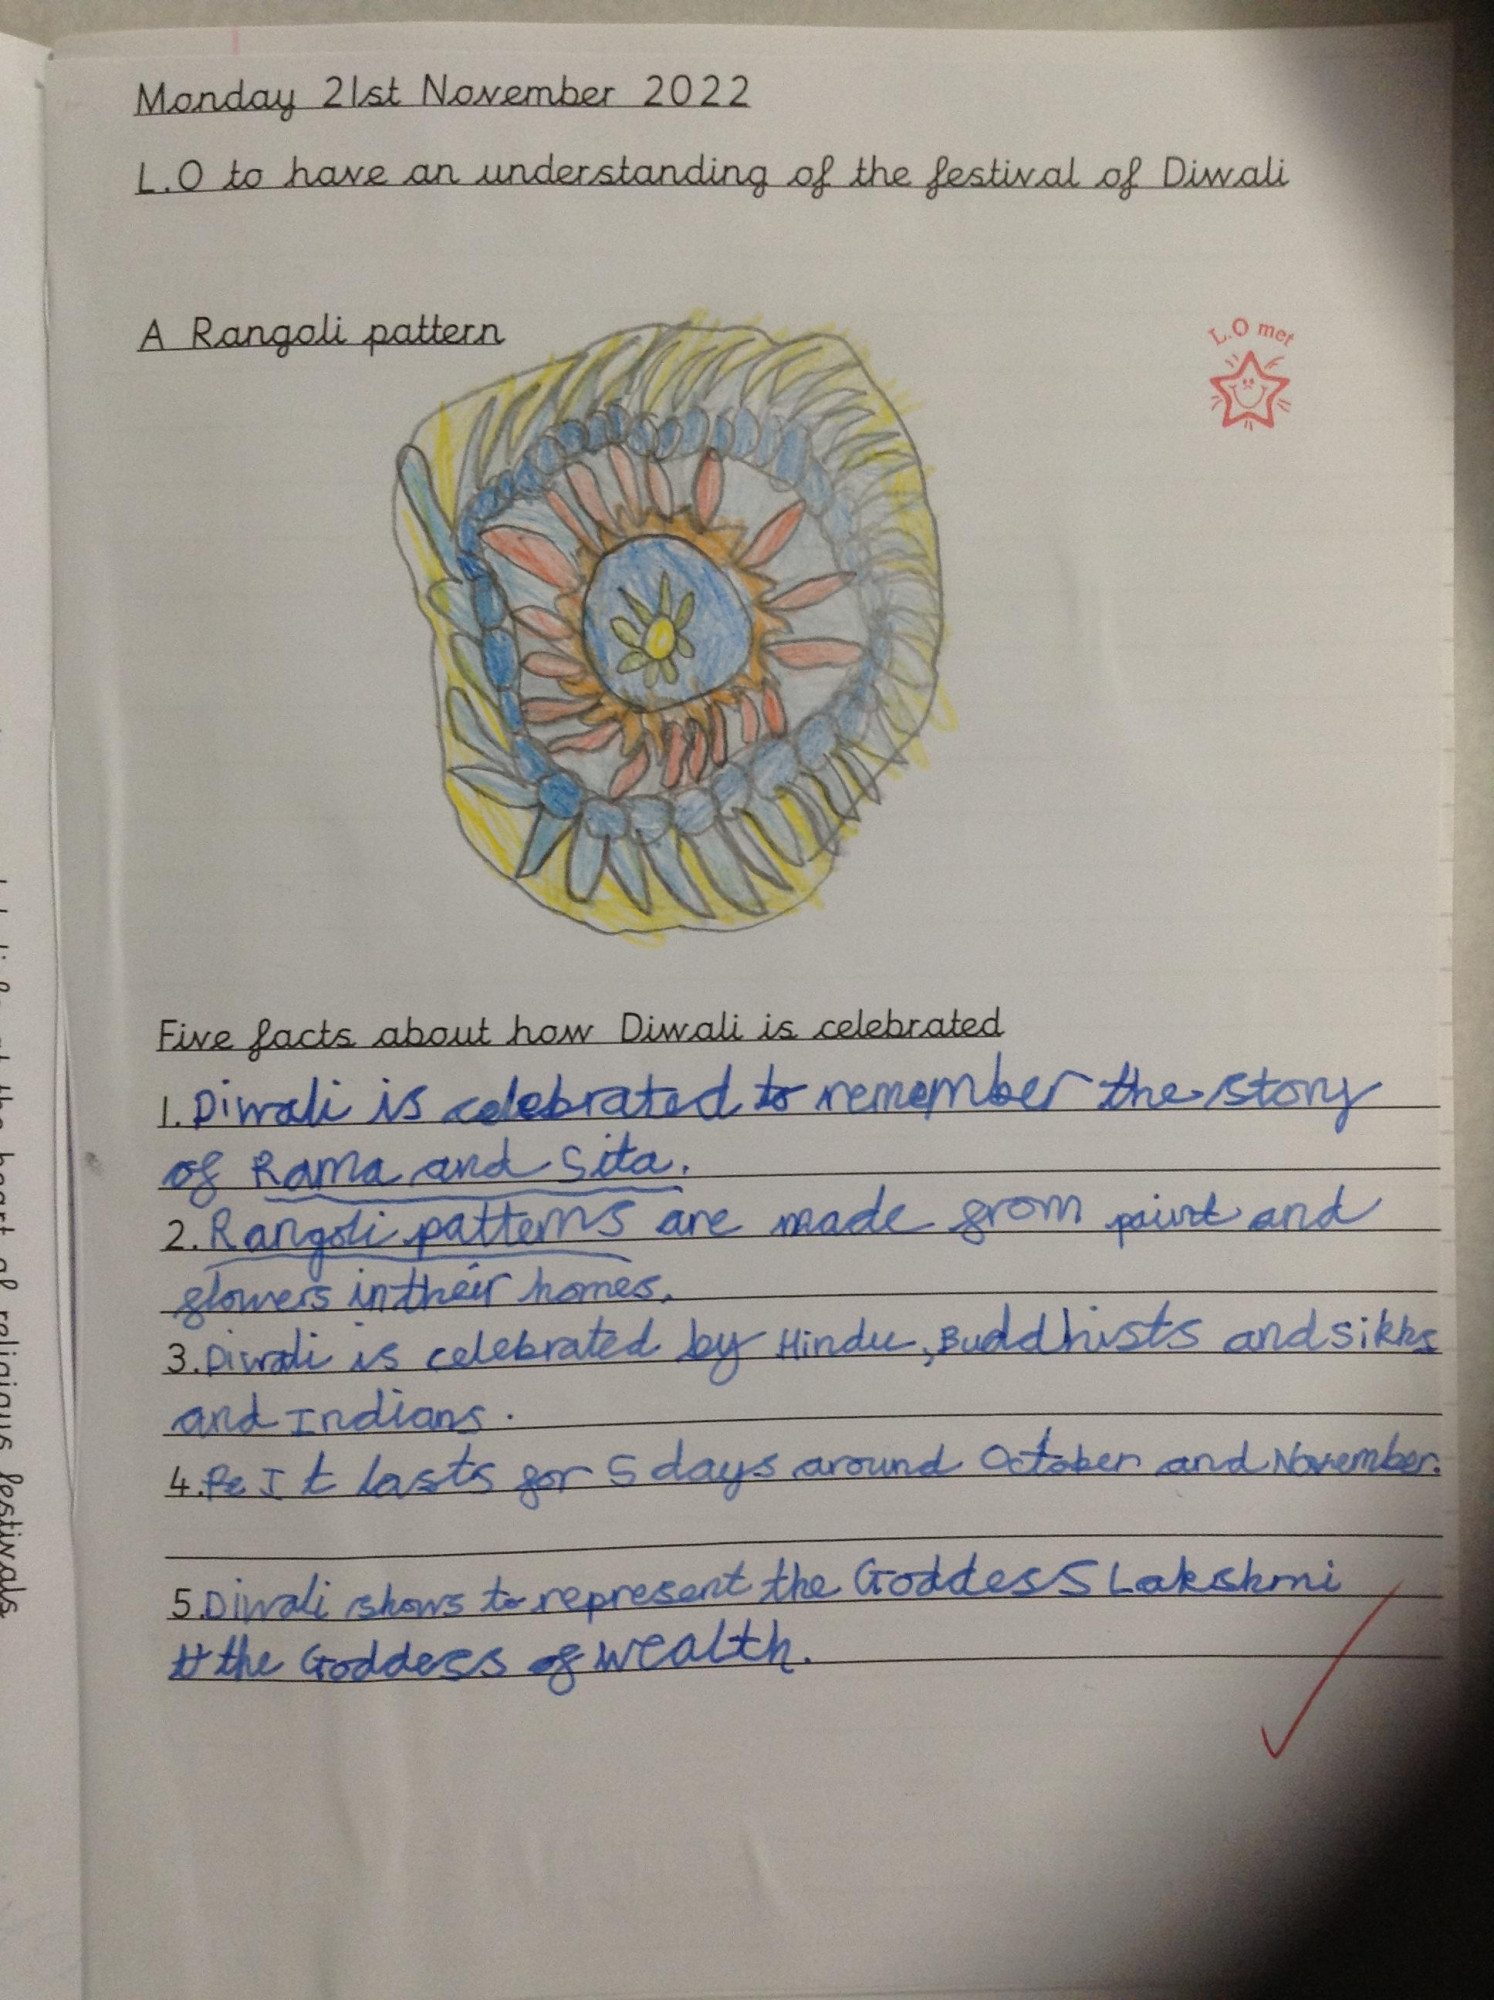 Monday 21st November 2022
L.O to have an understanding of the festival of Diwali
A Rangoli pattern
L.O met
Five facts about how Diwali is celebrated
1. Diwali is celebrated to remember the story
of Rama and Sita.
2. Rangoli patterns are made from paint and
flowers in their homes.
3. Diwali is celebrated by Hindu, Buddhists and sikhs
and Indians.
4. It lasts for 5 days around October and November.
5. Diwali shows to represent the Goddess Lakshmi
the Goddess of wealth.